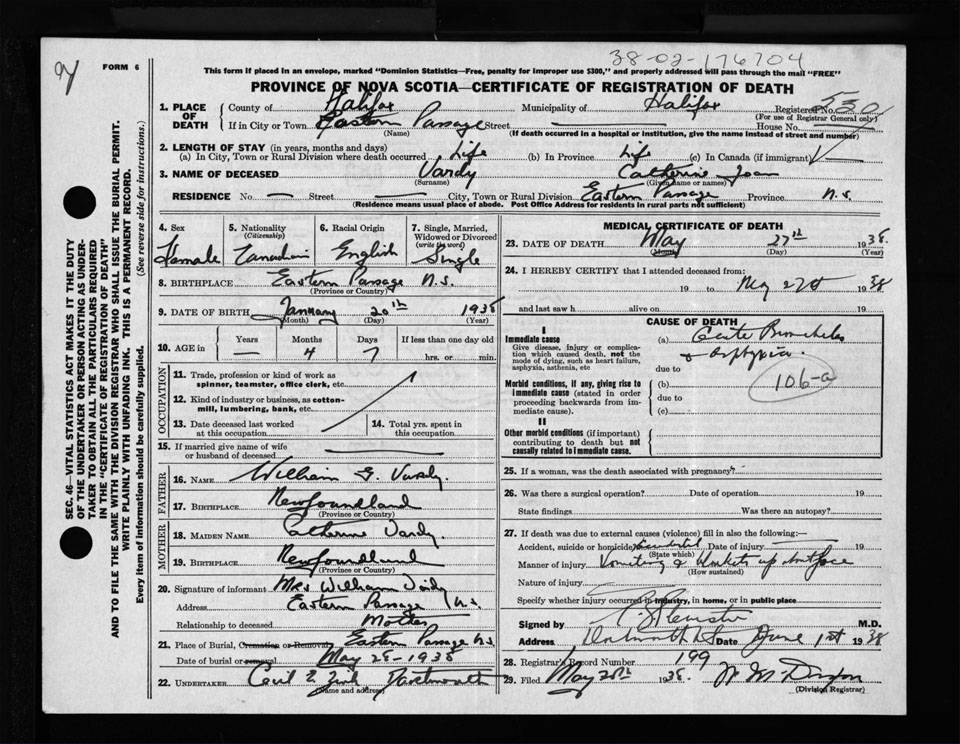 38-02-176704
FORM 6
This form if placed in an envelope, marked "Dominion Statistics—Free, penalty for improper use $300," and properly addressed will pass through the mail "FREE"
PROVINCE OF NOVA SCOTIA—CERTIFICATE OF REGISTRATION OF DEATH
1. PLACE OF DEATH County of Halifax Municipality of Halifax Registered No. 530
(For use of Registrar General only)
If in City or Town Eastern Passage Street — House No.
(Name) (If death occurred in a hospital or institution, give the name instead of street and number)
2. LENGTH OF STAY (in years, months and days)
(a) In City, Town or Rural Division where death occurred Life (b) In Province Life (c) In Canada (if immigrant) —
3. NAME OF DECEASED Vardy Catherine Joan
(Surname) (Given name or names)
RESIDENCE No. — Street — City, Town or Rural Division Eastern Passage Province N.S.
(Residence means usual place of abode. Post Office Address for residents in rural parts not sufficient)
4. Sex Female
5. Nationality (Citizenship) Canadian
6. Racial Origin English
7. Single, Married, Widowed or Divorced (write the word) Single
8. BIRTHPLACE Eastern Passage N.S.
(Province or Country)
9. DATE OF BIRTH January 20th 1938
(Month) (Day) (Year)
10. AGE in Years — Months 4 Days 7 If less than one day old
hrs. or min.
OCCUPATION
11. Trade, profession or kind of work as spinner, teamster, office clerk, etc.
12. Kind of industry or business, as cotton-mill, lumbering, bank, etc.
13. Date deceased last worked at this occupation
14. Total yrs. spent in this occupation
15. If married give name of wife or husband of deceased
FATHER
16. NAME William G. Vardy.
17. BIRTHPLACE Newfoundland
(Province or Country)
MOTHER
18. MAIDEN NAME Catherine Vardy.
19. BIRTHPLACE Newfoundland
(Province or Country)
20. Signature of informant Mrs William Vardy
Address Eastern Passage N.S.
Relationship to deceased Mother
21. Place of Burial, Cremation or Removal Eastern Passage N.S.
Date of burial or removal May 28-1938
22. UNDERTAKER Cecil E. Zink Dartmouth
(Name and address)
MEDICAL CERTIFICATE OF DEATH
23. DATE OF DEATH May 27th 1938.
(Month) (Day) (Year)
24. I HEREBY CERTIFY that I attended deceased from:
19 to May 27th 1938
and last saw h alive on 19
CAUSE OF DEATH
I
Immediate cause
Give disease, injury or complication which caused death, not the mode of dying, such as heart failure, asphyxia, asthenia, etc
(a) Acute Bronchitis
& Asphyxia.
due to
106-a
Morbid conditions, if any, giving rise to immediate cause (stated in order proceeding backwards from immediate cause).
(b)
due to
(c)
II
Other morbid conditions (if important) contributing to death but not causally related to immediate cause.
25. If a woman, was the death associated with pregnancy?
26. Was there a surgical operation? Date of operation 19
State findings Was there an autopsy?
27. If death was due to external causes (violence) fill in also the following:—
Accident, suicide or homicide Accidental Date of injury 19
(State which)
Manner of injury Vomiting & blankets up face
(How sustained)
Nature of injury
Specify whether injury occurred in industry, in home, or in public place
Signed by M.D.
Address Dartmouth N.S. Date June 1st 1938
28. Registrar's Record Number 199
29. Filed May 28th 1938.
(Division Registrar)
SEC. 46—VITAL STATISTICS ACT MAKES IT THE DUTY OF THE UNDERTAKER OR PERSON ACTING AS UNDERTAKER TO OBTAIN ALL THE PARTICULARS REQUIRED IN THE "CERTIFICATE OF REGISTRATION OF DEATH" AND TO FILE THE SAME WITH THE DIVISION REGISTRAR WHO SHALL ISSUE THE BURIAL PERMIT.
WRITE PLAINLY WITH UNFADING INK. THIS IS A PERMANENT RECORD.
Every item of information should be carefully supplied. (See reverse side for instructions.)